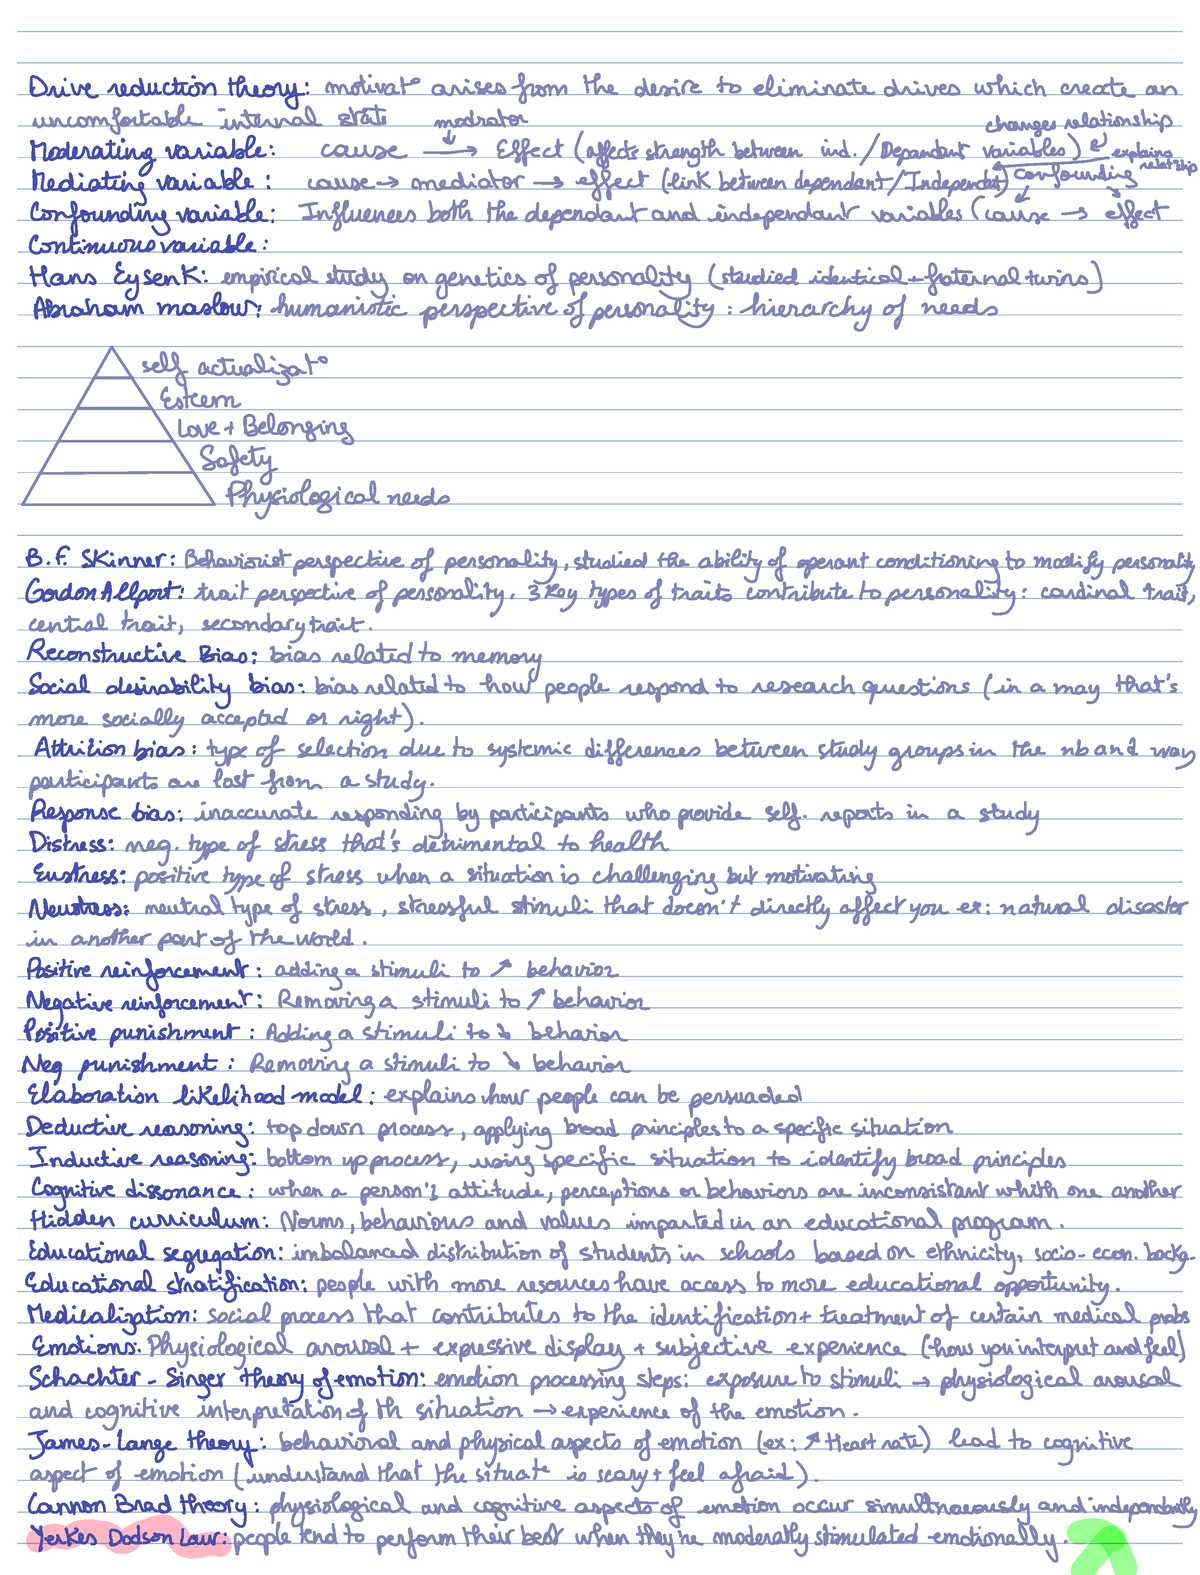 Drive reduction theory: motivat° arises from the desire to eliminate drives which create an
uncomfortable internal state
modrator
changes relationship
Moderating variable: cause → Effect (affects strength between ind./Dependant variables)
explains relatship
Mediating variable: cause → mediator → effect (link between dependant/Independat)
confounding
Confounding variable: Influences both the dependant and independant variables (cause → effect
Continuous variable:
Hans EysenK: empirical study on genetics of personality (studied identical + fraternal twins)
Abraham maslow: humanistic perspective of personality: hierarchy of needs
self actualizat°
Esteem
Love + Belonging
Safety
Physiological needs
B.F. SKinner: Behaviorist perspective of personality, studied the ability of operant conditioning to modify personality
Gordon Allport: trait perspective of personality. 3 Key types of traits contribute to personality: cardinal trait,
central trait, secondary trait.
Reconstructive Bias: bias related to memory
Social desirability bias: bias related to how people respond to research questions (in a may that's
more socially accepted or right).
Attrition bias: type of selection due to systemic differences between study groups in the nb and way
participants are lost from a study.
Response bias: inaccurate responding by participants who provide self. reports in a study
Distress: neg. type of stress that's detrimental to health
Eustress: positive type of stress when a situation is challenging but motivating
Neustress: neutral type of stress, stressful stimuli that doesn't directly affect you ex: natural disaster
in another part of the world.
Positive reinforcement: adding a stimuli to ↗ behavior
Negative reinforcement: Removing a stimuli to ↗ behavior
Positive punishment: Adding a stimuli to ↘ behavior
Neg punishment: Removing a stimuli to ↘ behavior
Elaboration likelihood model: explains how people can be persuaded
Deductive reasoning: top down process, applying broad principles to a specific situation
Inductive reasoning: bottom up process, using specific situation to identify broad principles
Cognitive dissonance: when a person's attitude, perceptions or behaviors are inconsistant whith one another
Hidden curriculum: Norms, behavious and values imparted in an educational program.
Educational segregation: imbalanced distribution of students in schools based on ethnicity, socio-econ. backg-
Educational stratification: people with more resources have access to more educational opportunity.
Medicalization: social process that contributes to the identification + treatment of certain medical probs
Emotions: Physiological arousal + expressive display + subjective experience (how you interpret and feel)
Schachter-Singer theory of emotion: emotion processing steps: exposure to stimuli → physiological arousal
and cognitive interpretation of th situation → experience of the emotion.
James-Lange theory: behavioral and physical aspects of emotion (ex: ↗ Heart rate) lead to cognitive
aspect of emotion (understand that the situat° is scary + feel afraid).
Cannon Brad theory: physiological and cognitive aspects of emotion occur simultneously and independantly
Yerkes Dodson Law: people tend to perform their best when they're moderatly stimulated emotionally.